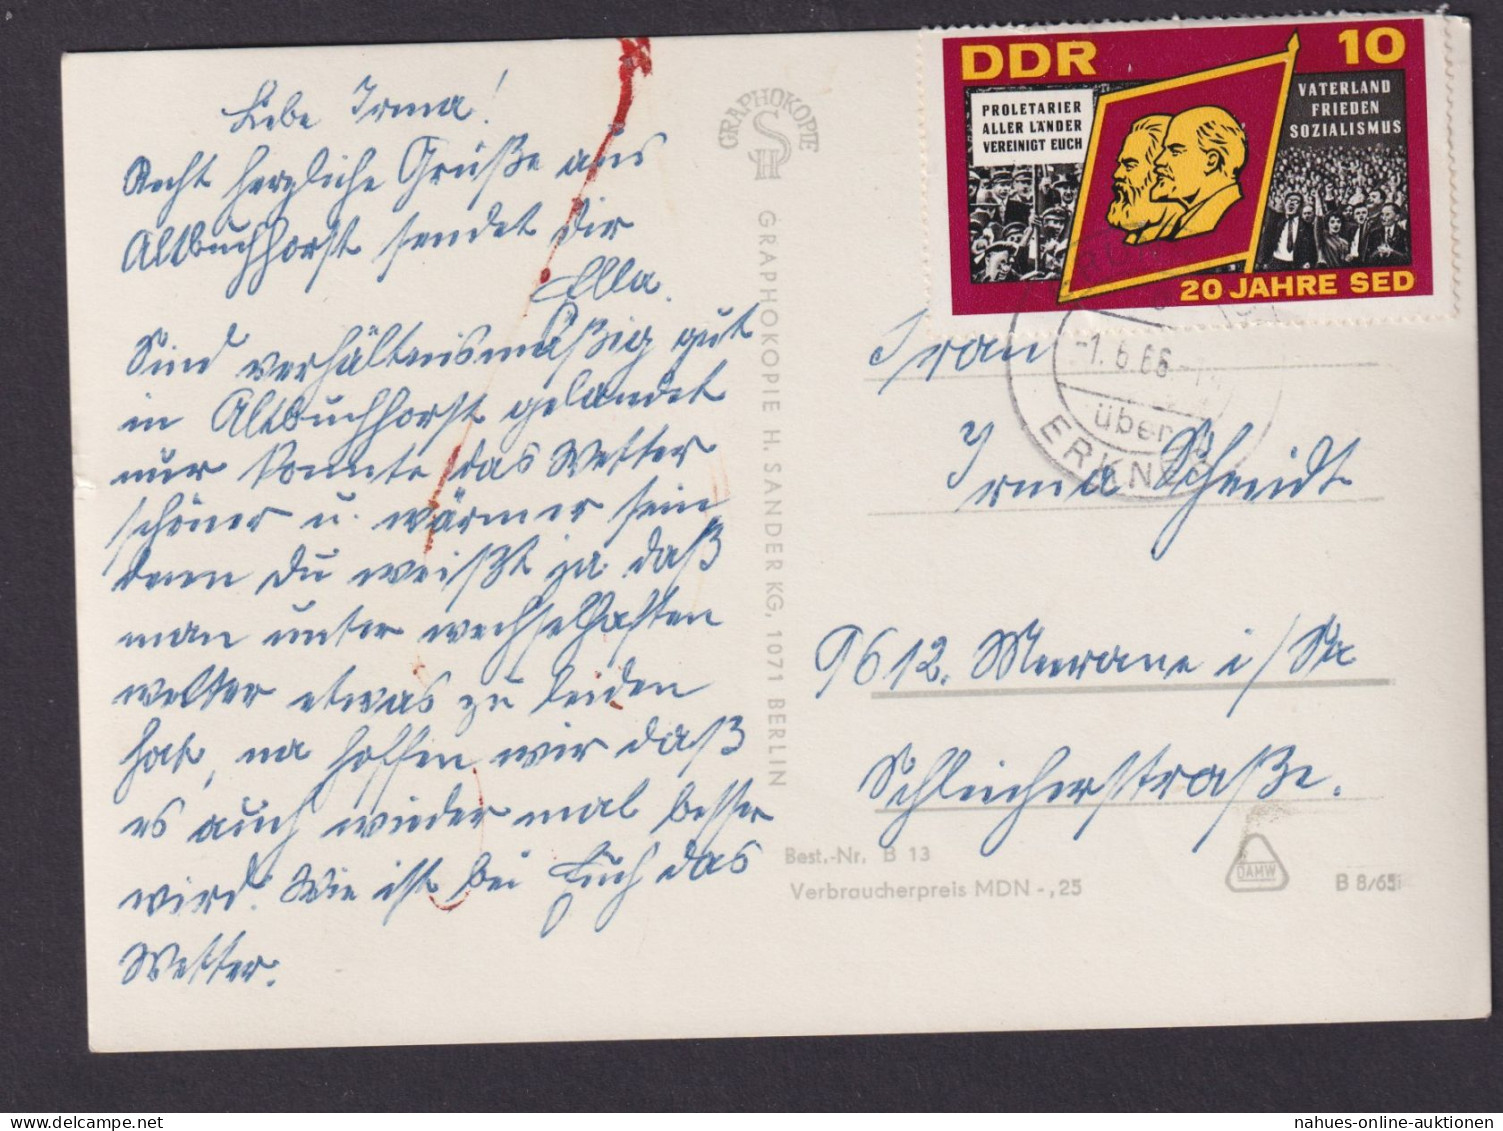 Liebe Irma!
Recht herzliche Grüße aus
Altbuchhorst sendet Dir
Ella.
Sind verhältnismäßig gut
in Altbuchhorst gelandet
nur konnte das Wetter
schöner u. wärmer sein,
denn Du weißt ja daß
man unter wechselhaften
wetter etwas zu leiden
hat, na hoffen wir daß
es auch wieder mal besser
wird. Wie ist bei Euch das
Wetter.
GRAPHOKOPIE
H S
GRAPHOKOPIE H. SANDER KG, 1071 BERLIN
DDR 10
PROLETARIER
ALLER LÄNDER
VEREINIGT EUCH
VATERLAND
FRIEDEN
SOZIALISMUS
20 JAHRE SED
-1.6.66-
über
ERKNER
Frau
Irma Schmidt
9612. Meerane i/Sa
Schleicherstraße.
Best.-Nr. B 13
Verbraucherpreis MDN -,25
DAMW
B 8/65
nahues-online-auktionen